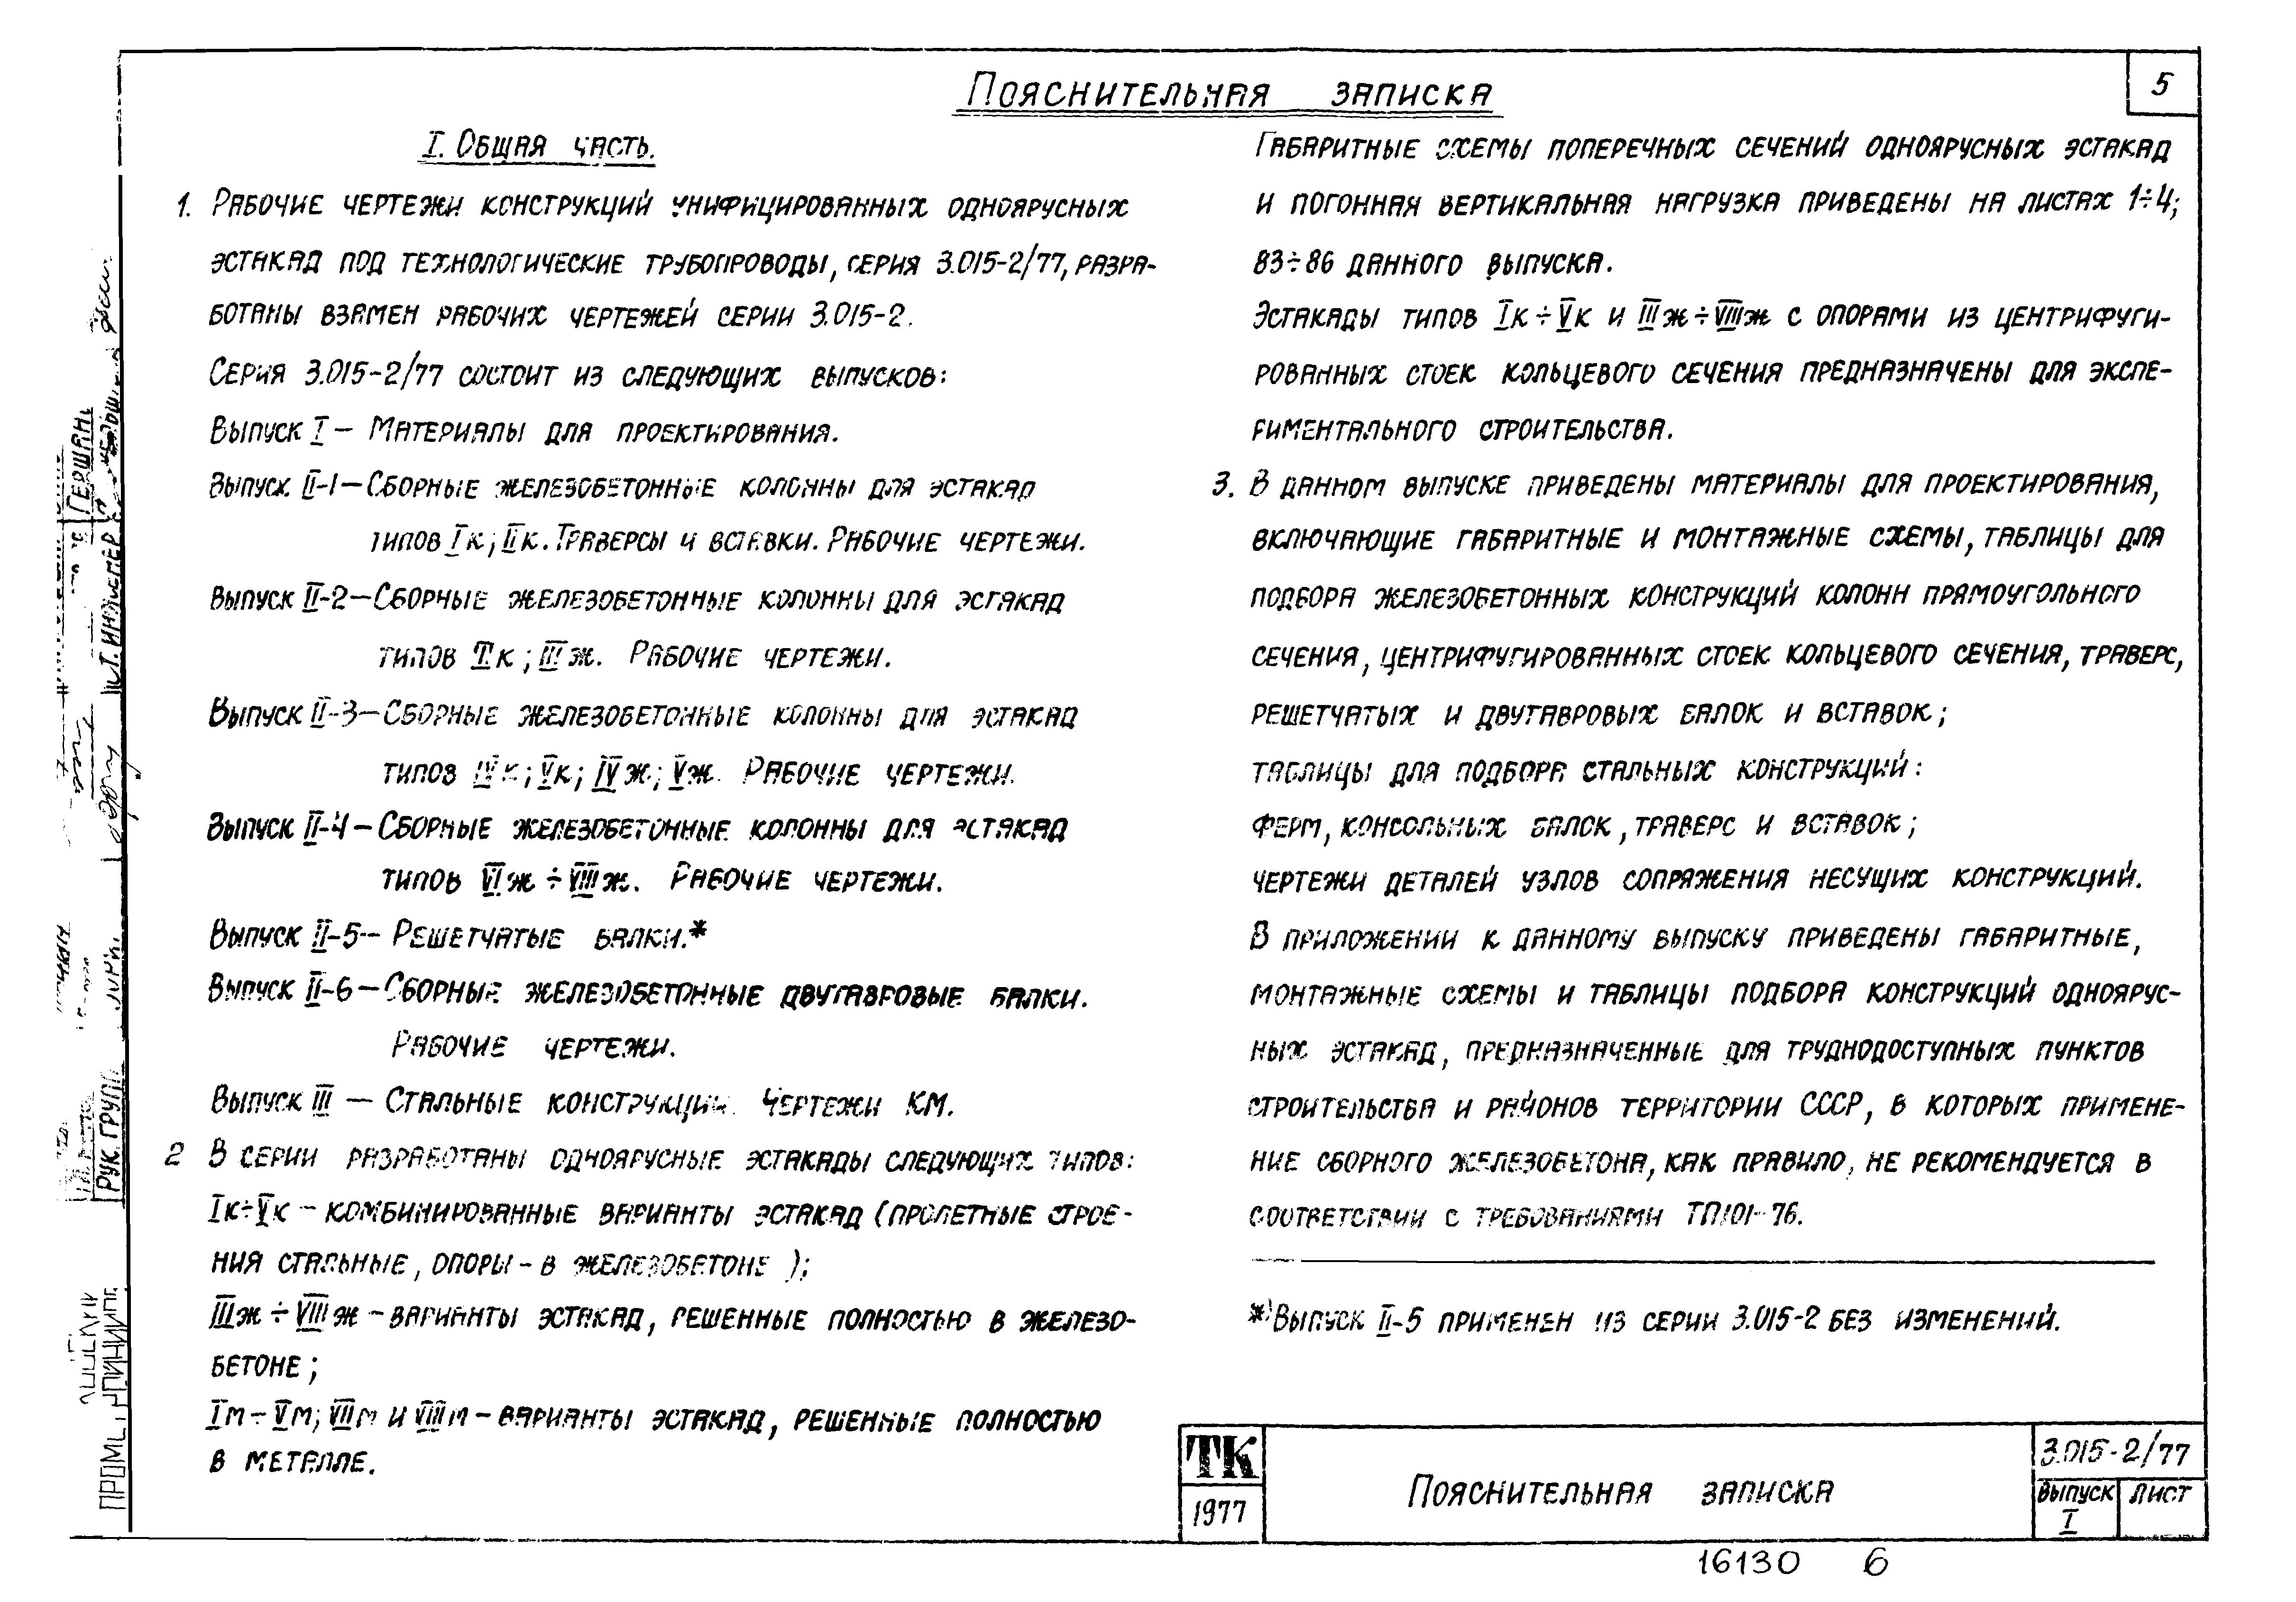 Пояснительная записка
5
I. Общая часть.
1. Рабочие чертежи конструкций унифицированных одноярусных
эстакад под технологические трубопроводы, серия 3.015-2/77, разра-
ботаны взамен рабочих чертежей серии 3.015-2.
Серия 3.015-2/77 состоит из следующих выпусков:
Выпуск I – Материалы для проектирования.
Выпуск II-1 – Сборные железобетонные колонны для эстакад
типов Iк; IIк. Траверсы и вставки. Рабочие чертежи.
Выпуск II-2 – Сборные железобетонные колонны для эстакад
типов к; IIIж. Рабочие чертежи.
Выпуск II-3 – Сборные железобетонные колонны для эстакад
типов IVк; Vк; IVж; Vж. Рабочие чертежи.
Выпуск II-4 – Сборные железобетонные колонны для эстакад
типов VIж ÷ VIIIж. Рабочие чертежи.
Выпуск II-5 – Решетчатые балки.*
Выпуск II-6 – Сборные железобетонные двутавровые балки.
Рабочие чертежи.
Выпуск III – Стальные конструкции. Чертежи КМ.
2 В серии разработаны одноярусные эстакады следующих типов:
Iк÷Vк – комбинированные варианты эстакад (пролетные строе-
ния стальные, опоры – в железобетоне);
IIIж ÷ VIIIж – варианты эстакад, решенные полностью в железо-
бетоне;
Iм÷Vм; VIIм и VIIIм – варианты эстакад, решенные полностью
в металле.
Габаритные схемы поперечных сечений одноярусных эстакад
и погонная вертикальная нагрузка приведены на листах 1÷4;
83÷86 данного выпуска.
Эстакады типов Iк ÷ Vк и IIIж ÷ VIIIж с опорами из центрифуги-
рованных стоек кольцевого сечения предназначены для экспе-
риментального строительства.
3. В данном выпуске приведены материалы для проектирования,
включающие габаритные и монтажные схемы, таблицы для
подбора железобетонных конструкций колонн прямоугольного
сечения, центрифугированных стоек кольцевого сечения, траверс,
решетчатых и двутавровых балок и вставок;
таблицы для подбора стальных конструкций:
ферм, консольных балок, траверс и вставок;
чертежи деталей узлов сопряжения несущих конструкций.
В приложении к данному выпуску приведены габаритные,
монтажные схемы и таблицы подбора конструкций одноярус-
ных эстакад, предназначенные для труднодоступных пунктов
строительства и районов территории СССР, в которых примене-
ние сборного железобетона, как правило, не рекомендуется в
соответствии с требованиями ТП101-76.
*) Выпуск II-5 применен из серии 3.015-2 без изменений.
ТК
1977
Пояснительная записка
3.015-2/77
Выпуск
I
Лист
16130 6
Гершань
Гл. инженер
Рук. групп